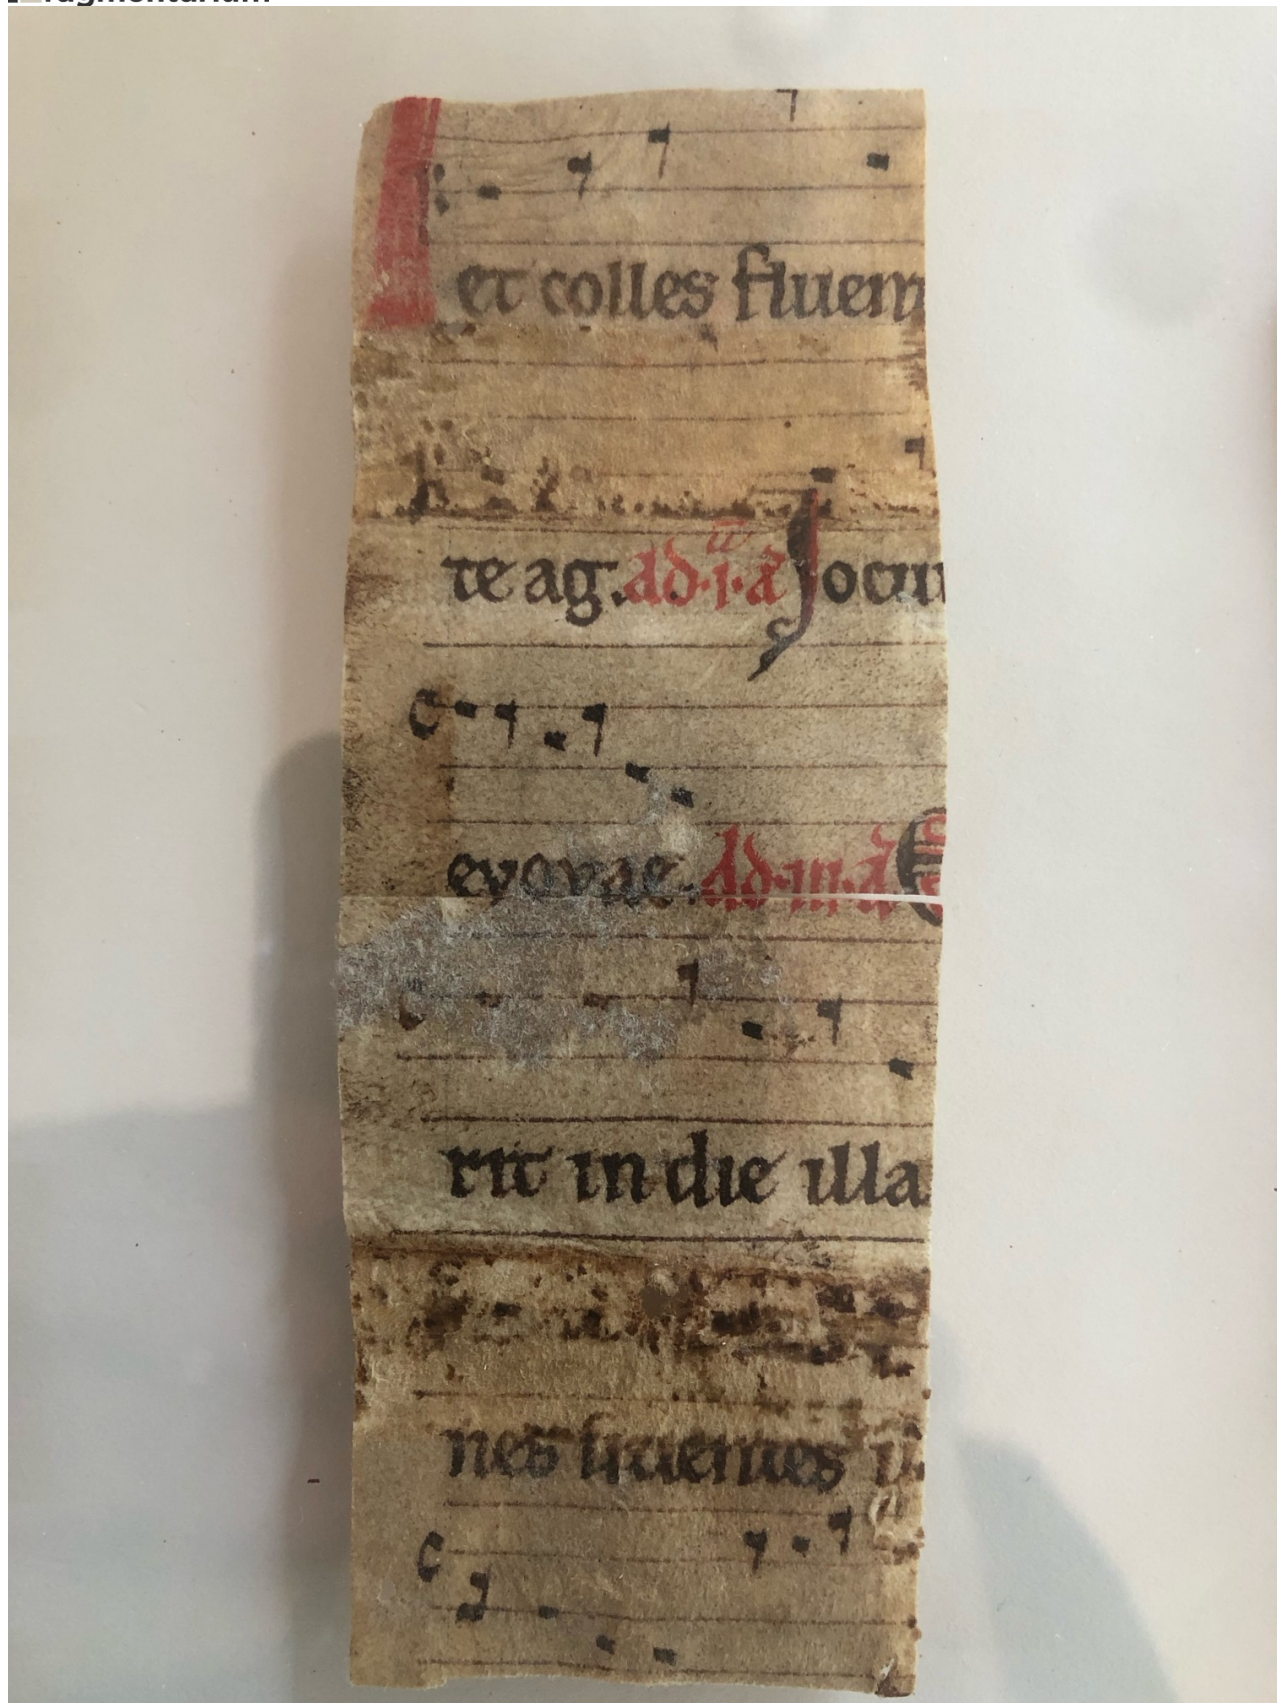 et colles fluent
te ag. ad .i. a Jocun
evovae. ad .iii. a E
rit in die illa
nes sitientes v